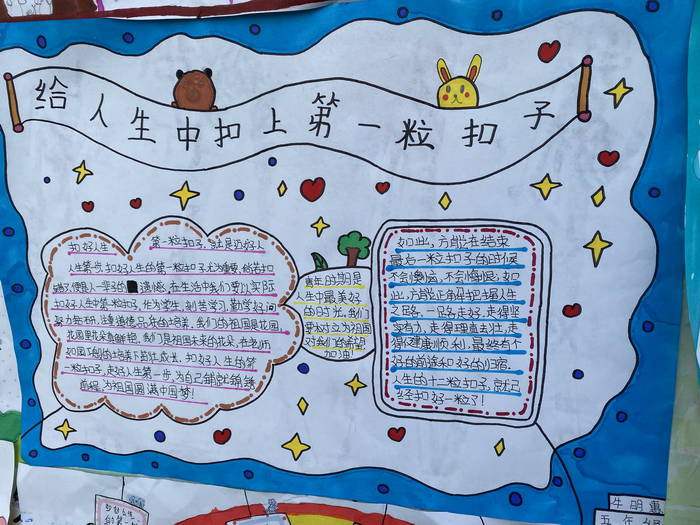 给人生中扣上第一粒扣子
扣好人生 第一粒扣子,就是迈好人
人生第一步,扣好人生的第一粒扣子尤为重要,
遗憾,在生活中我们要以实际
扣好人生中第一粒扣子,作为学生,刻苦学习,勤学好问
努力钻研,注重道德品质的培养,我们的祖国是花园
花园里花朵真鲜艳,我们是祖国未来的花朵,在老师
如园丁般的培养下茁壮成长,扣好人生的第
一粒扣子,走好人生第一步,为自己
为祖国圆满中国梦!
青年时期是
人生中最美好
的时光,我们
要树立为祖国
加油!
如此,方能在结束
最后一粒扣子的时候
不会懊恼,不会悔恨,如
此,方能正确把握人生
之路,一路走好,走得坚
实有力,走得理直气壮,走
得健康顺利,最终有个
好的前途和好的归宿.
人生的十二粒扣子,就已
经扣好一粒了!
的第一
牛明
五年级